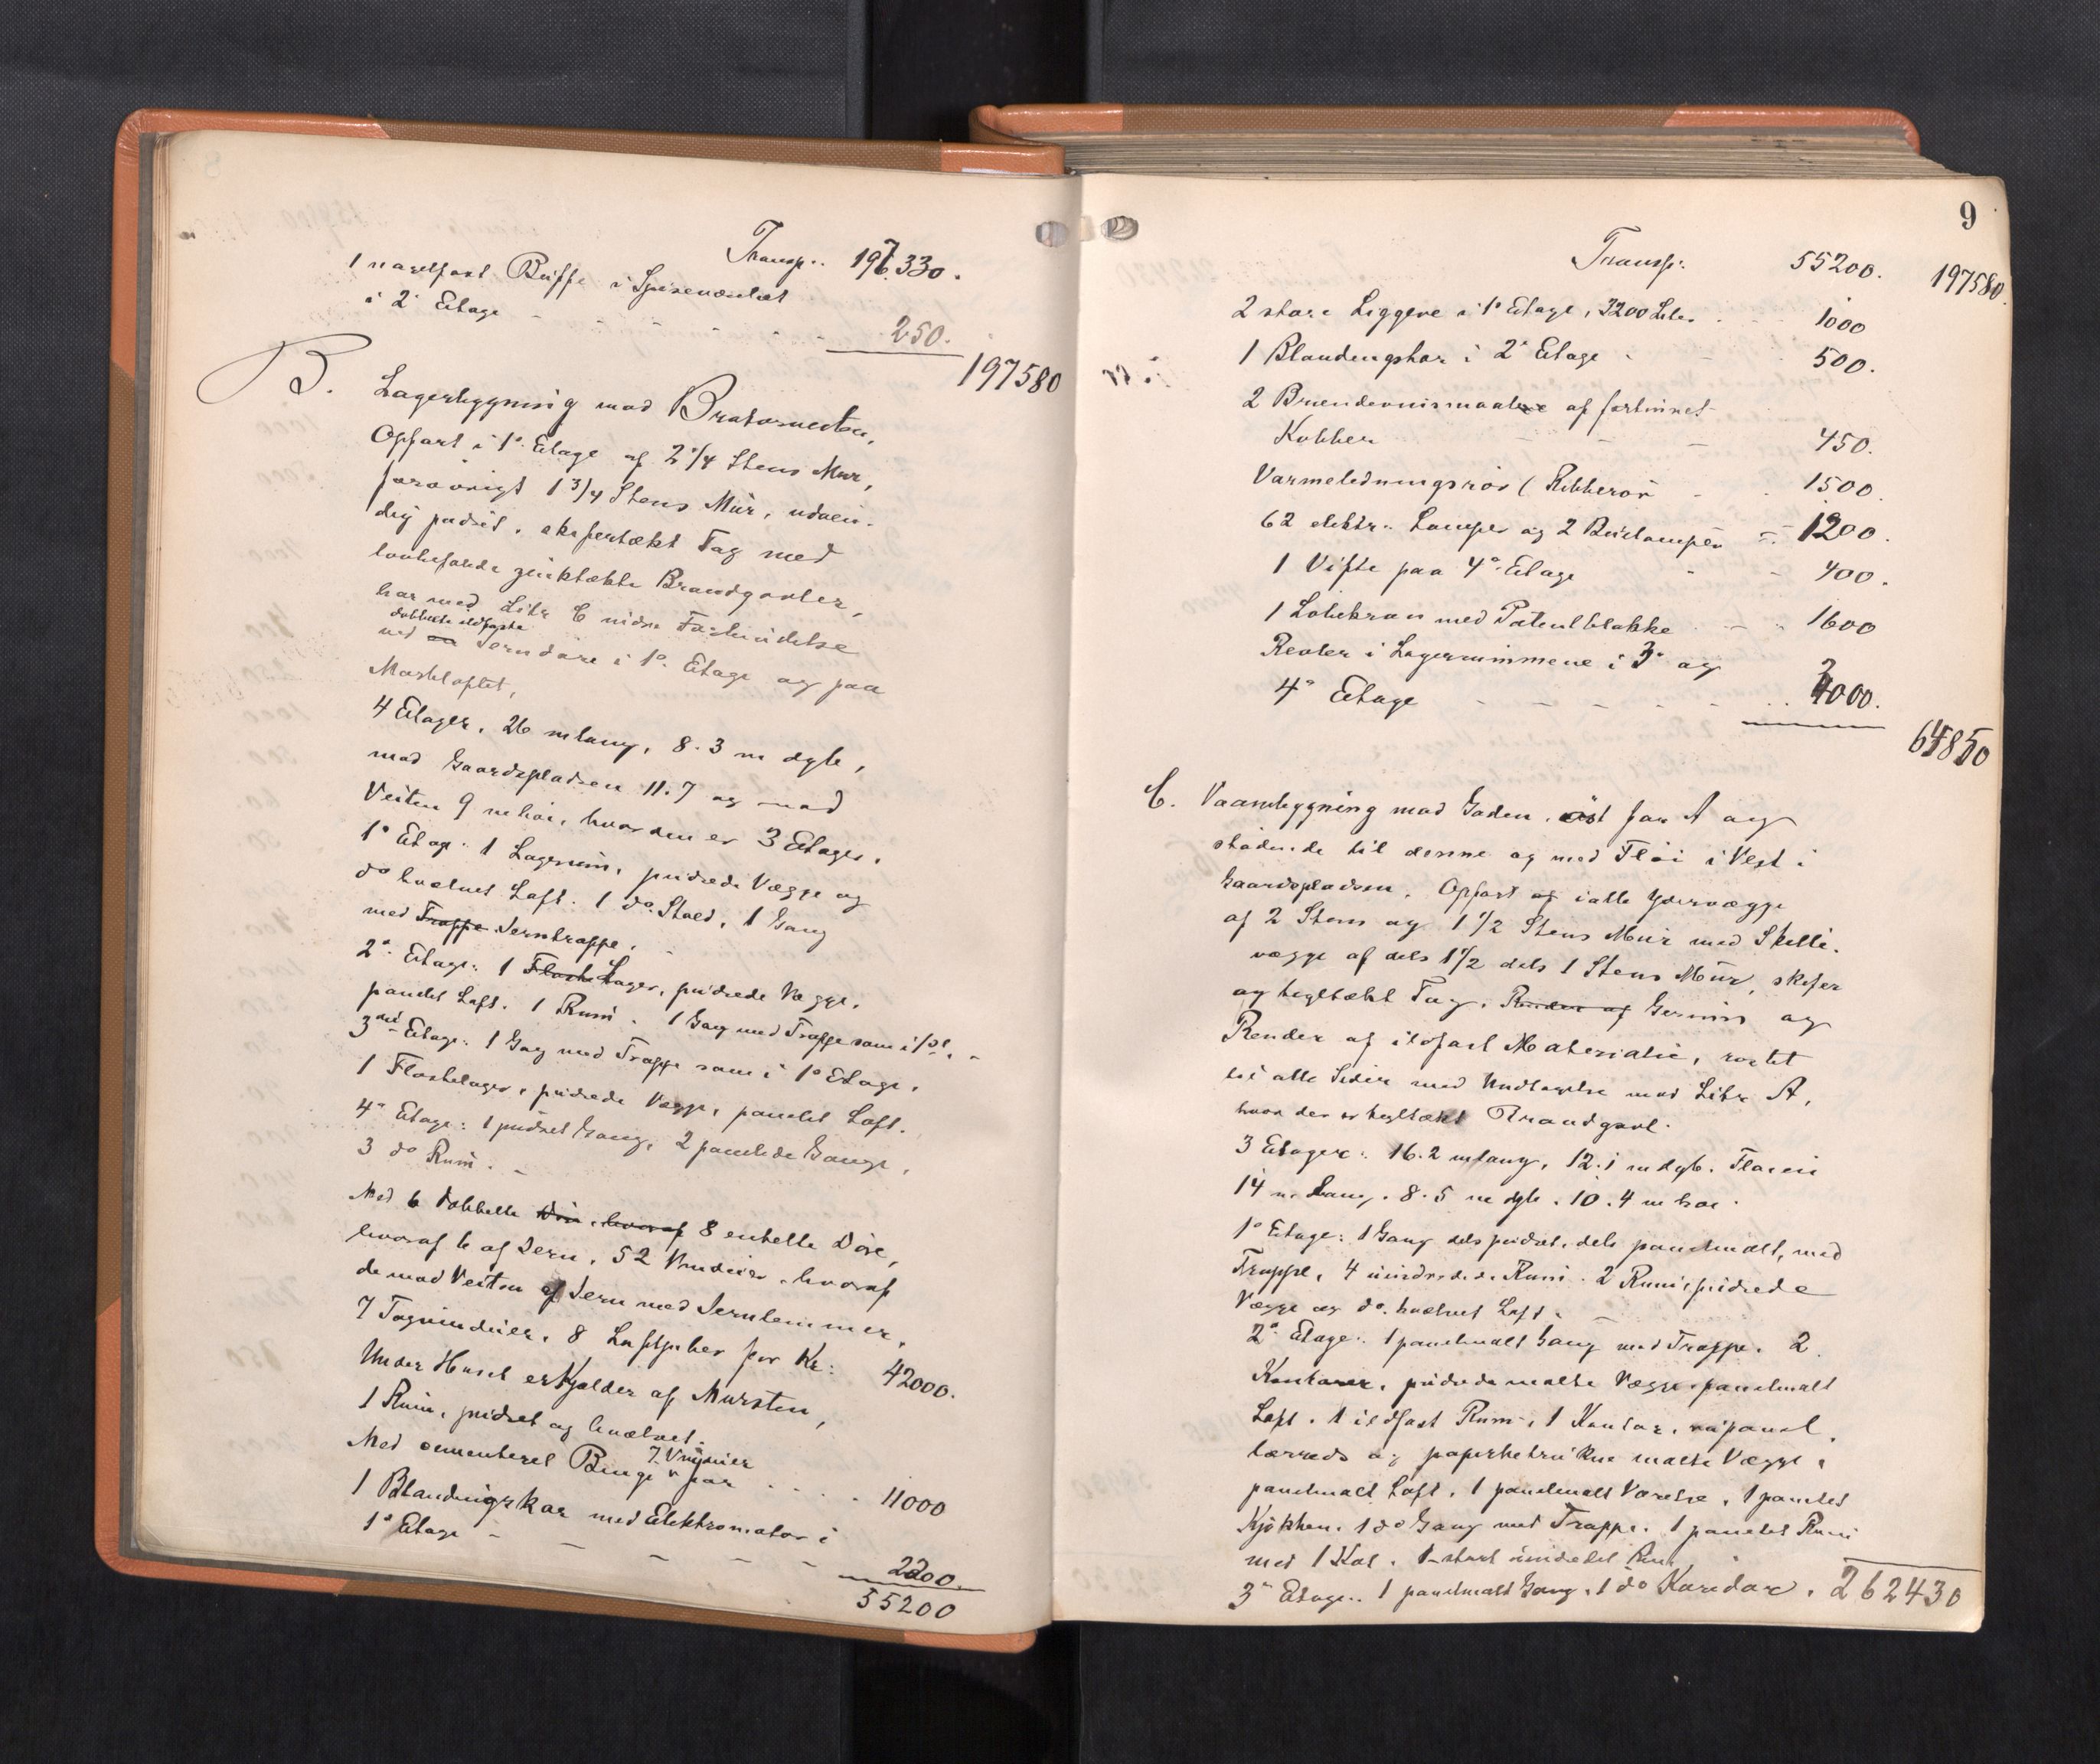 Transp.. 197.330.
1 nagelfast Buffe i Spiseværelset
i 2. Etage - - - - - - 250.
197580
B. Lagerbygning mod Bratørveiten,
Opført i 1ste Etage af 2 1/4 Stens Mur,
forøvrigt 1 3/4 Stens Mur, udven-
dig pudset, skifertækt Tag med
lovbefalede zinktækte Brandgavler,
har med Litr C indre Forbindelse
dobbelte ildfaste
ved en Jerndøre i 1ste Etage og paa
Mørkloftet,
4 Etager, 26 m lang, 8.3 m dyb,
mod Gaardspladsen 11.7 og mod
Veiten 9 m høi, hvor den er 3 Etages.
1ste Etage: 1 Lagerrum, pudsede Vægge og
do hvælvet Loft. 1 do. Stald, 1 Gang
med Trappe Jerntrappe.
2den Etage: 1 Flaske Lager, pudsede Vægge,
panelet Loft. 1 Rum. 1 Gang med Trappe som i 1ste E.
3die Etage: 1 Gang med Trappe som i 1ste Etage.
1 Flaskelager, pudsede Vægge, panelet Loft.
4de Etage: 1 pudset Gang, 2 panelede Gange,
3 do Rum. -
Med 6 dobbelte Døre, hvoraf 8 enkelte Døre,
hvoraf 6 af Jern, 52 Vinduer, hvoraf
de mod Veiten af Jern med Jernlemmer,
7 Tagvinduer, 8 Luftpiber for Kr: 42000.
Under Huset er Kjælder af Mursten,
1 Rum, pudset og hvælvet.
7 Vinduer
Med cementeret Binge for . . . . 11000
1 Blandingskar med Elektromotor i
1ste Etage - - - - - 2200.
55200
9
Transp. 55200. 197580.
2 store Liggere i 1ste Etage, 3200 Liter . - 1000
1 Blandingskar i 2den Etage - - 500.
2 Brændevinsmaalere af fortinnet
Kobber - - - 450.
Varmeledningsrør (Ribberør - . 1500.
62 elektr. Lamper og 2 Buelamper = 1200.
1 Vifte paa 4de Etage - - 400.
1 Løbekran med Patentblokke . - . 1600
Reoler i Lagerrummene i 3die og
4de Etage - - - - - . . 3000.
64850
C. Vaaningsbygning mod Gaden, øst for A og
stødende til denne og med Fløi i Vest i
Gaardspladsen. Opført af i alle Ydervægge
af 2 Stens og 1 1/2 Stens Mur med Skille-
vægge af dels 1 1/2 dels 1 Stens Mur, skifer
og tegltækt Tag. Render af Gesims og
Render af ildfast Materiale,
til alle Sider med Undtagelse mod Litr A,
hvor der er tegltækt Brandgavl.
3 Etager: 16.2 m lang, 12.1 m dyb. Fløien
14 m lang, 8.5 m dyb. 10.4 m høi.
1ste Etage: 1 Gang dels pudset, dels panelmalt, med
Trappe, 4 uindredede Rum. 2 Rum, pudsede
Vægge og do. hvælvet Loft.
2den Etage: 1 panelmalt Gang med Trappe. 2
Kontorer, pudsede malte Vægge, panelmalt
Loft. 1 ildfast Rum, 1 Kontor, raapanel,
lærreds og papirbetrukne malte Vægge,
panelmalt Loft, 1 panelmalt Værelse, 1 panelet
Kjøkken. 1 do Gang med Trappe. 1 panelet Rum
med 1 Kot. 1 stort uindredet Rum.
3die Etage.. 1 panelmalt Gang, 1 do Koridor. 262430